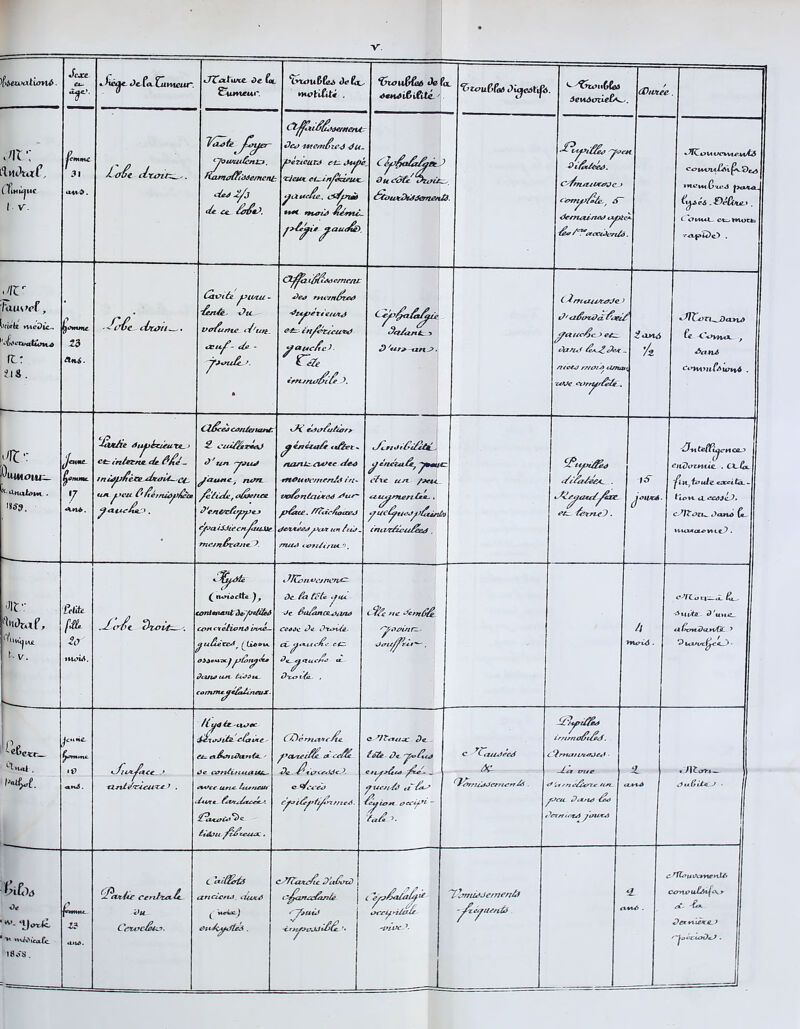 V.
Observations.
Sexe
et
âge.
Siége de la Tumeur.
Nature de la
Tumeur.
Troubles de la
motilité.
Troubles de la
sensibilité.
Troubles digestifs.
Troubles
sensoriels.
Durée.
Mr.
Andral,
Clinique
t. V.
femme
31
ans.
Lobe droit.
Vaste foyer
purulent.
Ramollissement
des 2/3
de ce lobe.
Affaiblissement
des membres su-
périeurs et supé
rieur et inférieur
gauche. Après
un mois hémi-
plégie gauche.
Céphalalgie
du côté droit.
Étourdissements.
Pupilles peu
dilatées.
Amaurose
complète, 5
semaines après
les 1ers accidents.
Mouvements
convulsifs des
membres para-
lysés. Délire.
Coma et mort
rapide.
Mr.
Fauvel,
société médic.
d'observations
N.:
218.
homme
23
ans.
Lobe droit.
Cavité puru-
lente du
volume d'un
œuf-de-
poule.
Affaiblissement
des membres
supérieurs
et inférieurs
gauche.
Tête
immobile.
Céphalalgie
datant
d'un an.
Amaurose
d'abord à l'œil
gauche et
dans les 2 der-
niers mois amau
rose complète.
2 ans
1/2
Mort dans
le Coma,
sans
convulsions.
Mr.
Dumont
anatom.
1859.
Jeune
homme
17
ans.
Partie supérieure
et interne de l'hé-
misphère droit et
un peu l'hémisphère
gauche.
Abcès contenant
2 cuillerées
d'un pus
jaune, non
fétide, absence
d'enveloppe
épaissie en fausse
membrane.
Résolution
générale alter-
nant avec des
mouvements in-
volontaires sur
place. Mâchoires
serrées par un tris-
mus continu.
Sensibilité
générale, peut
être un peu
augmentée.
quelques plaintes
inarticulées.
Pupilles
dilatées.
Regard fixe
et terne.
15
jours.
Intelligence
endormie. A la
fin, toute excita-
tion a cessé.
Mort dans le
marasme.
Mr.
Andral,
Clinique
t. V.
Petite
fille
20
mois.
Lobe droit.
Kyste
(noisette),
contenant de petites
concrétions irré-
gulières, (tissu
osseux) plongées
dans un tissu
comme gélatineux.
Mouvement
de la tête qui
se balance sans
cesse de droite
à gauche et
de gauche à
droite.
Elle ne semble
point
souffrir.
4
mois.
Mort à la
suite d'une
abondante
diarrhée.
Lebert
Anat.
pathol.
jeune
homme
19
ans.
Surface
antérieure.
Kyste avec
sérosité claire
et abondante
se continuant
avec une tumeur
dure lardacée
Parois de
tissu fibreux.
Démarche
pareille à celle
de l'ivresse.
Accès
épileptiformes.
Maux de
tête de plus
en plus fré-
quents à la
région occipi-
tale.
Nausées
&
Vomissements.
Pupilles
immobiles.
Amauroses.
La vue
s'améliore un
peu dans les
derniers jours
2
ans
Mort
subite.
Bilds
de
New. York
médicale
1858.
femme
23
ans.
Partie centrale
du
Cervelet.
Caillots
anciens, durs
(noix)
enkystés.
Marche d'abord
chancelante
puis
impossible.
Céphalalgie
occipitale
vive.
Vomissements
fréquents
2
ans.
Mouvements
convulsifs
à la
dernière
période.